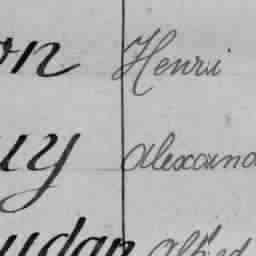 on Henri
uy Alexand
udan Alfred